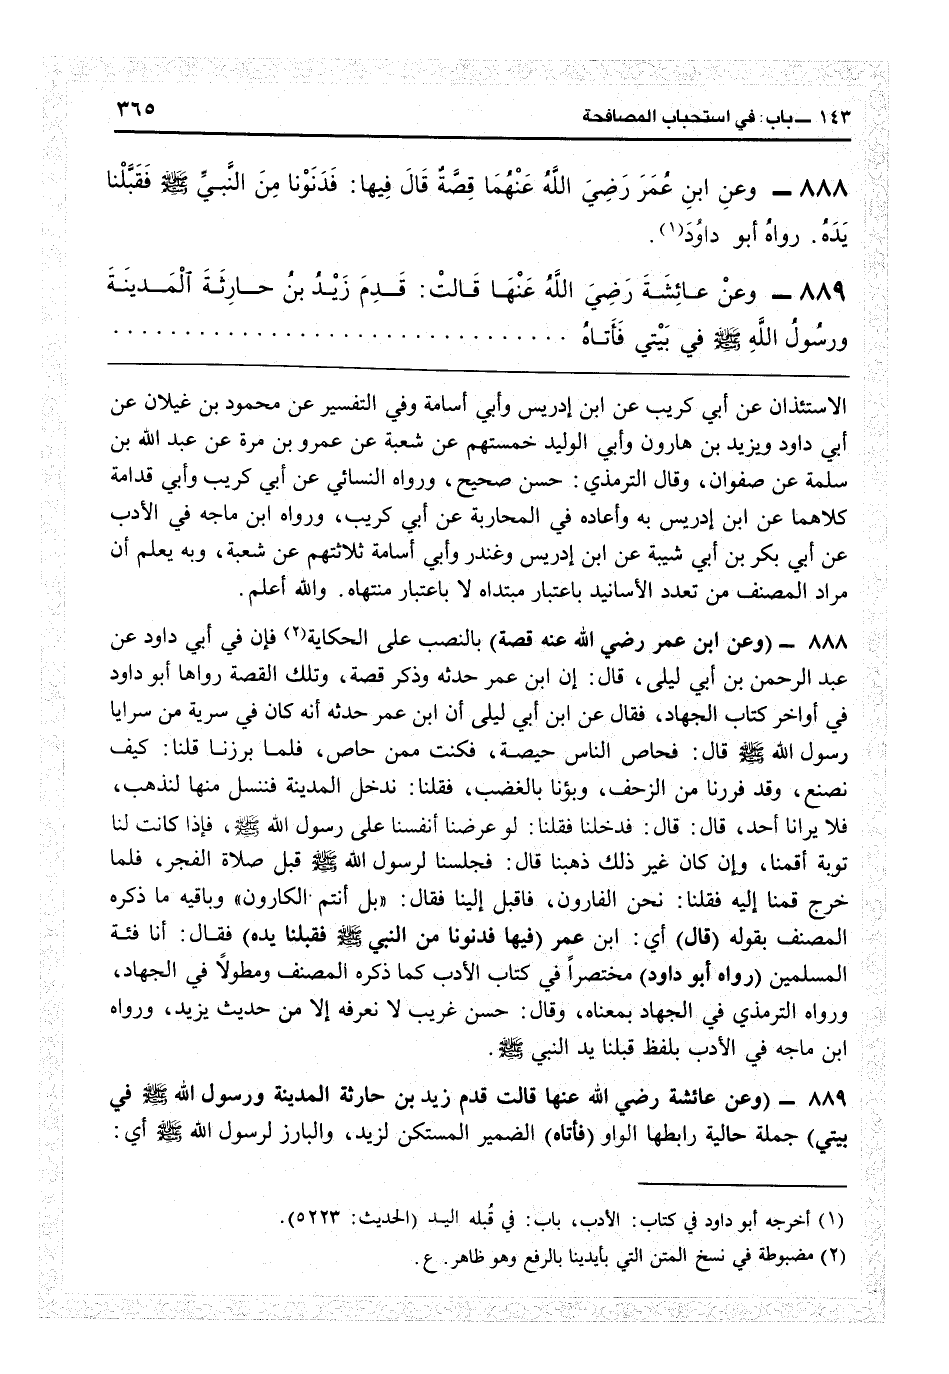 ١٤٣ ــ باب: في استحباب المصافحة
٣٦٥
٨٨٨ ــ وعنِ ابنِ عُمَرَ رَضِيَ اللَّهُ عَنْهُمَا قِصَّةٌ قَالَ فِيها: فَدَنَوْنا مِنَ النَّبِيِّ ﷺ فَقَبَّلْنا
يَدَهُ. رواهُ أبو داوُدَ(١).
٨٨٩ ــ وعنْ عائِشَةَ رَضِيَ اللَّهُ عَنْها قَالتْ: قَدِمَ زَيْدُ بنُ حارِثَةَ ٱلْمَدينَةَ
ورسُولُ اللَّهِ ﷺ في بَيْتي فَأَتاهُ . . . . . . . . . . . . . . . . . . . . . . . . . . . . . . . .
الاستئذان عن أبي كريب عن ابن إدريس وأبي أسامة وفي التفسير عن محمود بن غيلان عن
أبي داود ويزيد بن هارون وأبي الوليد خمستهم عن شعبة عن عمرو بن مرة عن عبد الله بن
سلمة عن صفوان، وقال الترمذي: حسن صحيح، ورواه النسائي عن أبي كريب وأبي قدامة
كلاهما عن ابن إدريس به وأعاده في المحاربة عن أبي كريب، ورواه ابن ماجه في الأدب
عن أبي بكر بن أبي شيبة عن ابن إدريس وغندر وأبي أسامة ثلاثتهم عن شعبة، وبه يعلم أن
مراد المصنف من تعدد الأسانيد باعتبار مبتداه لا باعتبار منتهاه. والله أعلم.
٨٨٨ ــ (وعن ابن عمر رضي الله عنه قصة) بالنصب على الحكاية(٢) فإن في أبي داود عن
عبد الرحمن بن أبي ليلى، قال: إن ابن عمر حدثه وذكر قصة، وتلك القصة رواها أبو داود
في أواخر كتاب الجهاد، فقال عن ابن أبي ليلى أن ابن عمر حدثه أنه كان في سرية من سرايا
رسول الله ﷺ قال: فحاص الناس حيصة، فكنت ممن حاص، فلما برزنا قلنا: كيف
نصنع، وقد فررنا من الزحف، وبؤنا بالغضب، فقلنا: ندخل المدينة فننسل منها لنذهب،
فلا يرانا أحد، قال: قال: فدخلنا فقلنا: لو عرضنا أنفسنا على رسول الله ﷺ، فإذا كانت لنا
توبة أقمنا، وإن كان غير ذلك ذهبنا قال: فجلسنا لرسول الله ﷺ قبل صلاة الفجر، فلما
خرج قمنا إليه فقلنا: نحن الفارون، فاقبل إلينا فقال: «بل أنتم الكارون» وباقيه ما ذكره
المصنف بقوله (قال) أي: ابن عمر (فيها فدنونا من النبي ﷺ فقبلنا يده) فقال: أنا فئة
المسلمين (رواه أبو داود) مختصراً في كتاب الأدب كما ذكره المصنف ومطولاً في الجهاد،
ورواه الترمذي في الجهاد بمعناه، وقال: حسن غريب لا نعرفه إلا من حديث يزيد، ورواه
ابن ماجه في الأدب بلفظ قبلنا يد النبي ﷺ.
٨٨٩ ــ (وعن عائشة رضي الله عنها قالت قدم زيد بن حارثة المدينة ورسول الله ﷺ في
بيتي) جملة حالية رابطها الواو (فأتاه) الضمير المستكن لزيد، والبارز لرسول الله ﷺ أي:
(١) أخرجه أبو داود في كتاب: الأدب، باب: في قُبله اليد (الحديث: ٥٢٢٣).
(٢) مضبوطة في نسخ المتن التي بأيدينا بالرفع وهو ظاهر. ع.